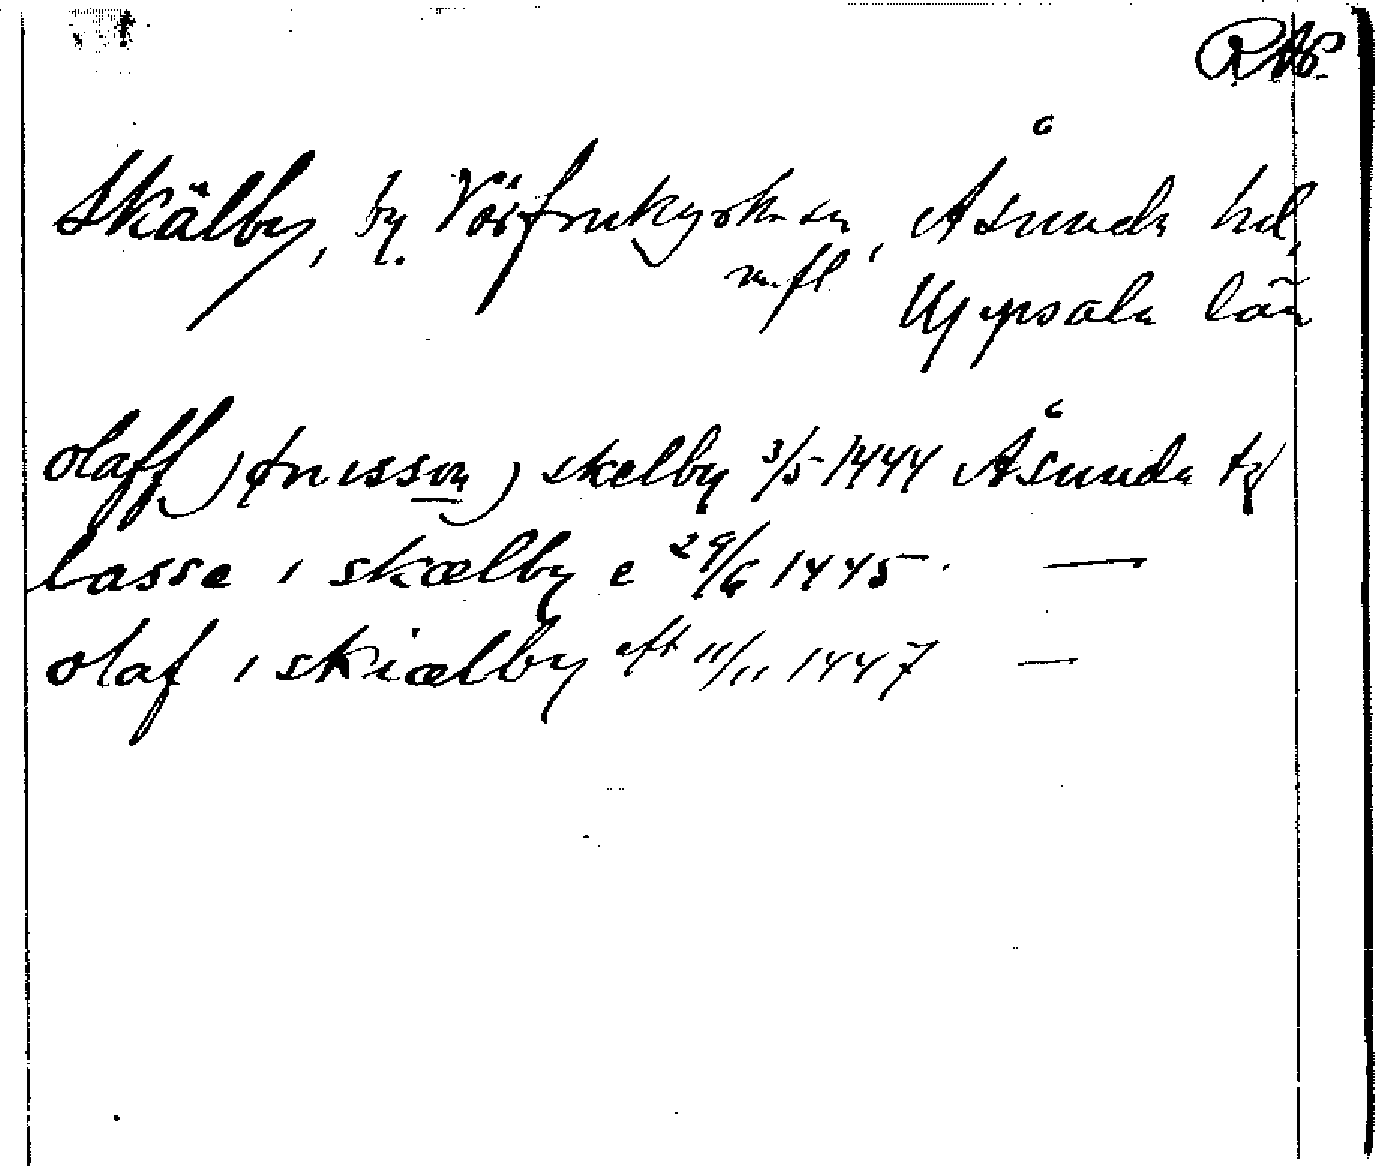 Skälby, by. Vårfrukyrkan, Åsunda hd,
m.fl. Uppsala län
olaff jønisson j skelby 3/5 1444 Åsunda tg
lasse i skælby e 29/6 1445 . —
olaf i skiælby eft 11/11 1447 —